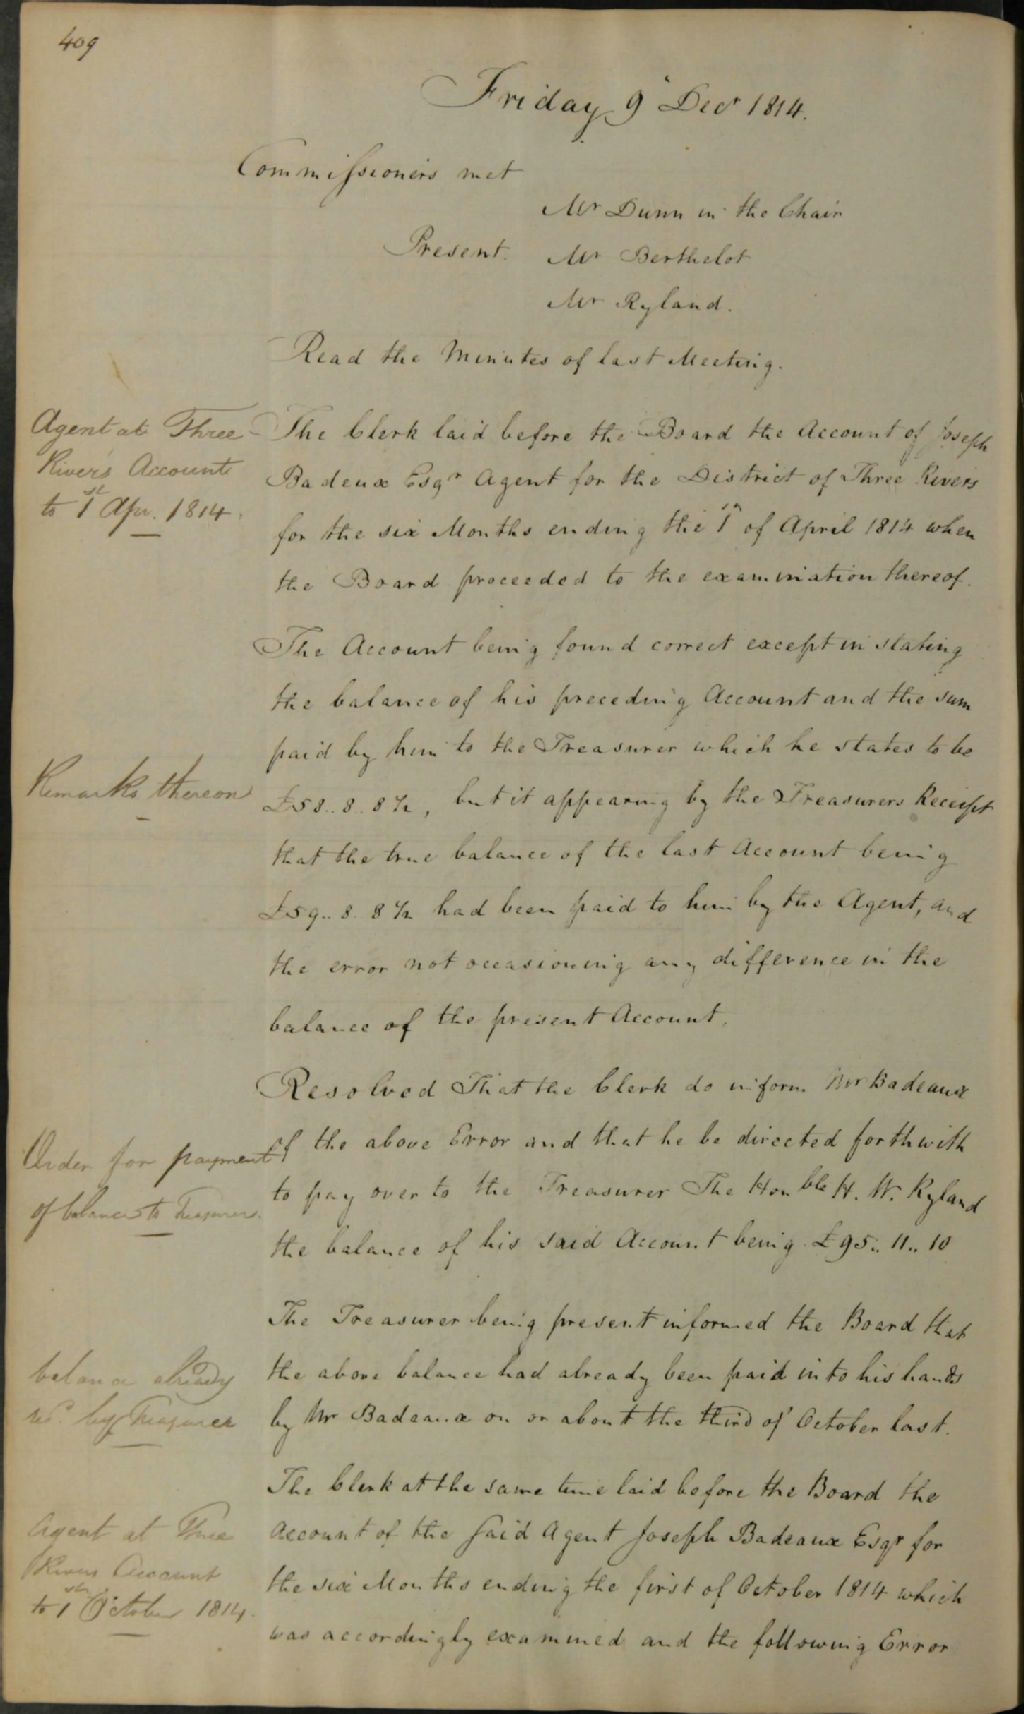 409
Friday 9th Decr 1814.
Commissioners met
Mr Dunn in the Chair
Present. Mr Berthelot
Mr Ryland.
Read the Minutes of last Meeting.
Agent at Three
Rivers Accounts
to 1st Apr. 1814.
The Clerk laid before the Board the Account of Joseph
Badeux Esqr Agent for the District of Three Rivers
for the six Months ending the 1st of April 1814 when
the Board proceeded to the examination thereof.
The Account being found correct except in stating
the balance of his preceding Account and the sum
paid by him to the Treasurer which he states to be
Remarks thereon
£58..8..8½, but it appearing by the Treasurers Receipt
that the true balance of the last Account being
£59..8..8½ had been paid to him by the Agent, and
the error not occasioning any difference in the
balance of the present Account.
Resolved That the Clerk do inform Mr Badeaux
of the above Error and that he be directed forthwith
Order for payment
of balance to Treasurer.
to pay over to the Treasurer The Honble H. W. Ryland
the balance of his said Account being £95..11..10
The Treasurer being present informed the Board that
balance already
recd. by Treasurer
the above balance had already been paid into his hands
by Mr Badeaux on or about the third of October last.
The Clerk at the same time laid before the Board the
Agent at Three
Rivers Account
to 1st October 1814.
Account of the said Agent Joseph Badeaux Esqr for
the six Months ending the first of October 1814 which
was accordingly examined and the following Error